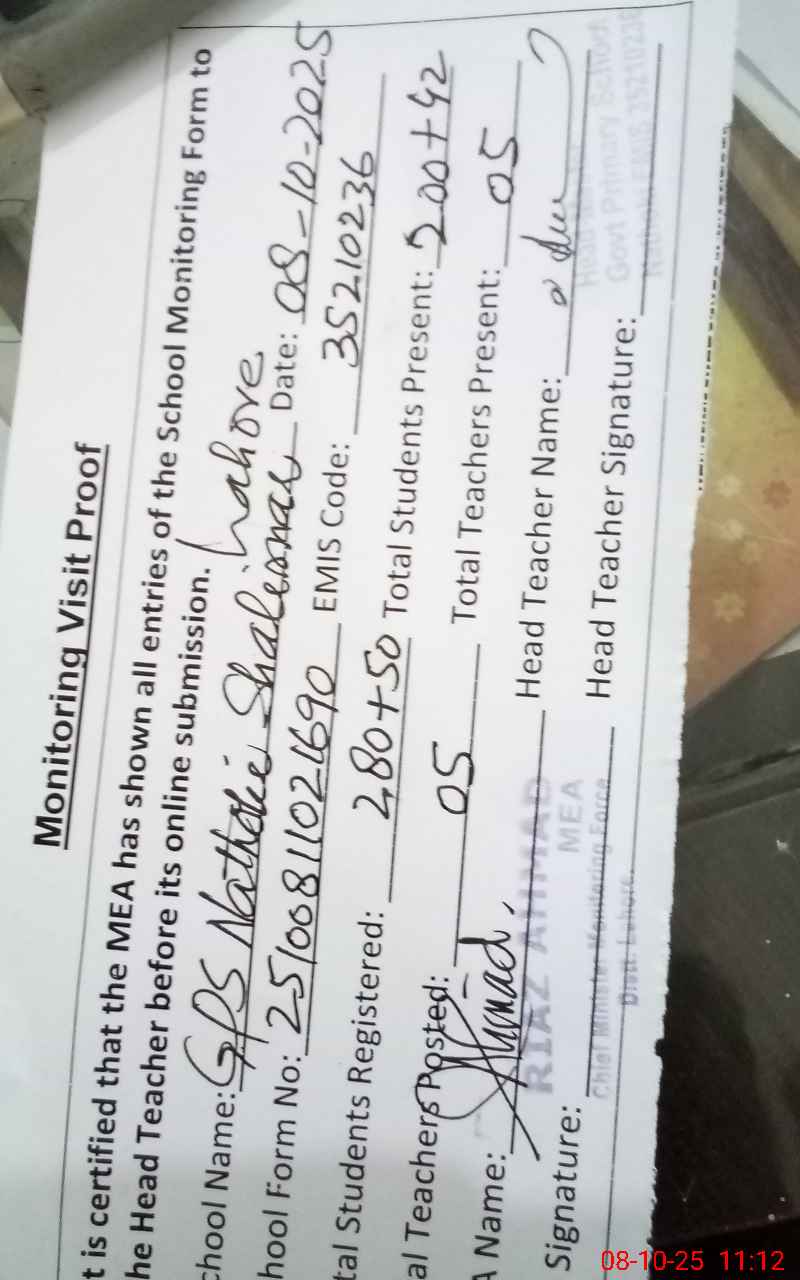 Monitoring Visit Proof
t is certified that the MEA has shown all entries of the School Monitoring Form to
he Head Teacher before its online submission.
chool Name: GPS Nathoki Shalimar Lahore Date: 08-10-2025
hool Form No: 25100811021690 EMIS Code: 35210236
tal Students Registered: 280+50 Total Students Present: 200+42
al Teachers Posted: 05 Total Teachers Present: 05
A Name: Ahmad. Head Teacher Name:
RIAZ AHMAD
MEA
Signature: Head Teacher Signature:
Chief Minister Monitoring Force
Distt. Lahore.
Govt Primary School
EMIS 35210236
08-10-25 11:12